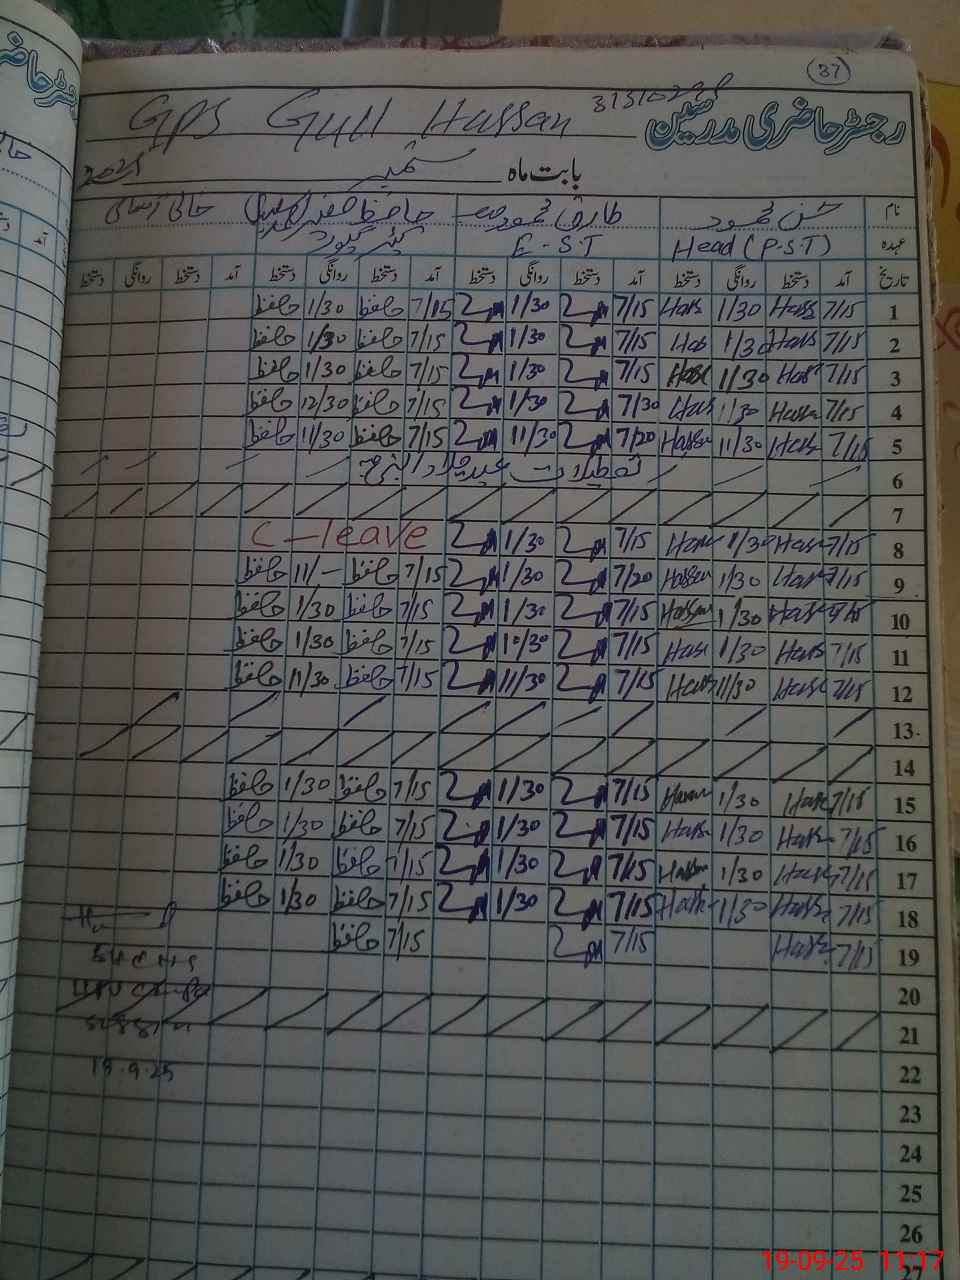 37
GPS Gull Hassan 31310298
رجسٹر حاضری مدرسین
بابت ماہ ستمبر 2025
نام حسن محمود طارق محمود حافظ خالی اسامی
عہدہ Head (P.S.T) E-S.T
تاریخ آمد دستخط روانگی دستخط آمد دستخط روانگی دستخط آمد دستخط روانگی دستخط آمد دستخط روانگی دستخط
1 7/15 Hass 1/30 Hass 7/15 1/30 7/15 حافظ 1/30 حافظ
2 7/15 Hass 1/30 Has 7/15 1/30 7/15 حافظ 1/30 حافظ
3 7/15 Hass 1/30 Hass 7/15 1/30 7/15 حافظ 1/30 حافظ
4 7/15 Hassan 1/30 Hass 7/30 1/30 7/15 حافظ 12/30 حافظ
5 7/15 Hass 11/30 Hassan 7/20 11/30 7/15 حافظ 11/30 حافظ
6 تعطیلات عید میلاد النبی
7
8 7/15 Hass 1/30 Hass 7/15 1/30 C-leave
9 7/15 Hass 1/30 Hassan 7/20 1/30 7/15 حافظ 11/- حافظ
10 7/15 Hass 1/30 Hassan 7/15 1/30 7/15 حافظ 1/30 حافظ
11 7/15 Hass 1/30 Hass 7/15 10/30 7/15 حافظ 1/30 حافظ
12 7/15 Hass 11/30 Hass 7/15 11/30 7/15 حافظ 11/30 حافظ
13
14
15 7/15 Hass 1/30 Hassan 7/15 1/30 7/15 حافظ 1/30 حافظ
16 7/15 Hass 1/30 Hass 7/15 1/30 7/15 حافظ 1/30 حافظ
17 7/15 Hass 1/30 Hassan 7/15 1/30 7/15 حافظ 1/30 حافظ
18 7/15 Hass 1/30 Hass 7/15 1/30 7/15 حافظ 1/30 حافظ
19 7/15 Hass 7/15 7/15 حافظ
20
21
22
19.9.25
23
24
25
26
27
19-09-25 11:17